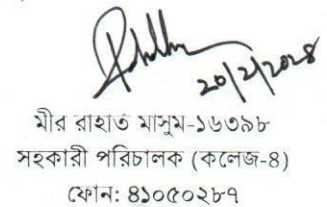 20/2/2024
মীর রাহাত মাসুম-১৬৩৯৮
সহকারী পরিচালক (কলেজ-৪)
ফোন: ৪১০৫০২৮৭